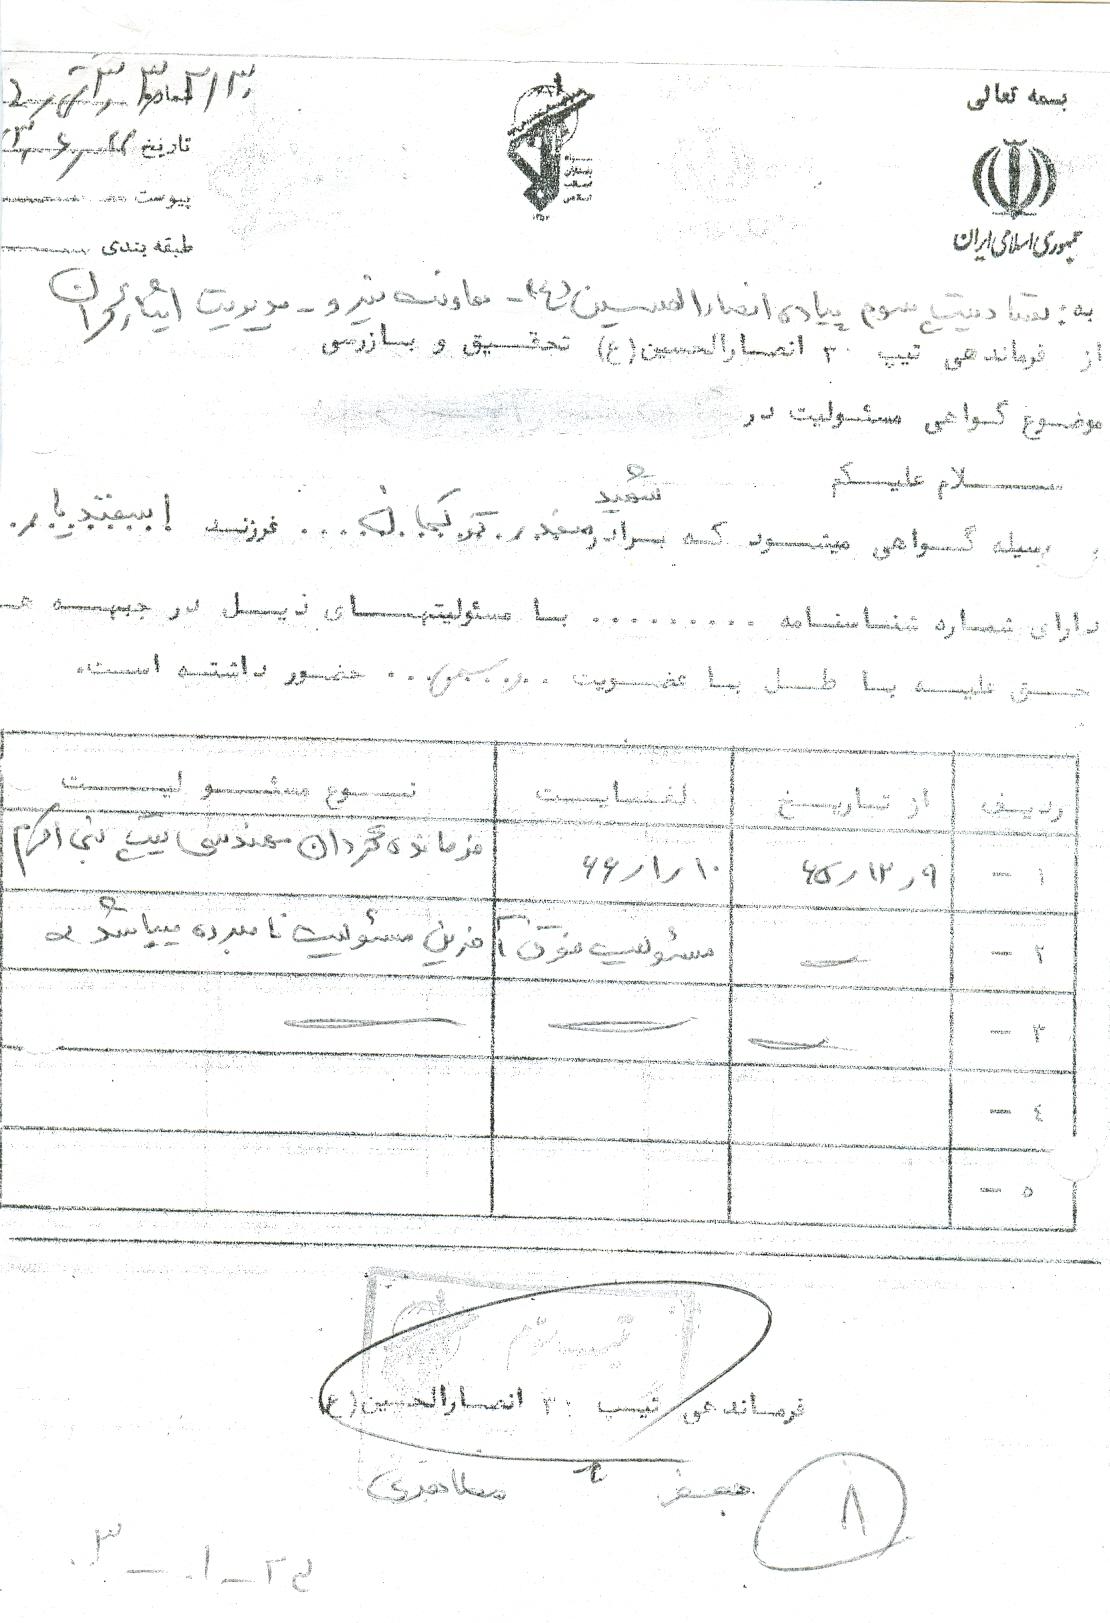 بسمه تعالی
جمهوری اسلامی ایران
شماره
تاریخ
پیوست
طبقه بندی
به: ستاد تیپ سوم پیاده انصارالحسین(ع) - معاونت نیرو - مدیریت ایثارگران
از فرماندهی تیپ ۳۰ انصارالحسین(ع) تحقیق و بازرسی
موضوع گواهی مسئولیت در
سلام علیکم
شهید
وسیله گواهی میشود که برادر صفدر ترکمان ... فرزند اسفندیار
دارای شماره شناسنامه ......... با مسئولیتهای ذیل در جبهه
حق علیه باطل با عضویت ... حضور داشته است.
ردیف از تاریخ لغایت نوع مسئولیت
۱ - ۶۵/۱۲/۹ ۶۶/۱/۱۰ فرمانده گردان مهندسی تیپ نبی اکرم
۲ - مسئولیت فوق آخرین مسئولیت نامبرده میباشد
۳ -
٤ -
۵ -
تیپ سوم
فرماندهی تیپ ۳۰ انصارالحسین(ع)
جعفر مظاهری
۸